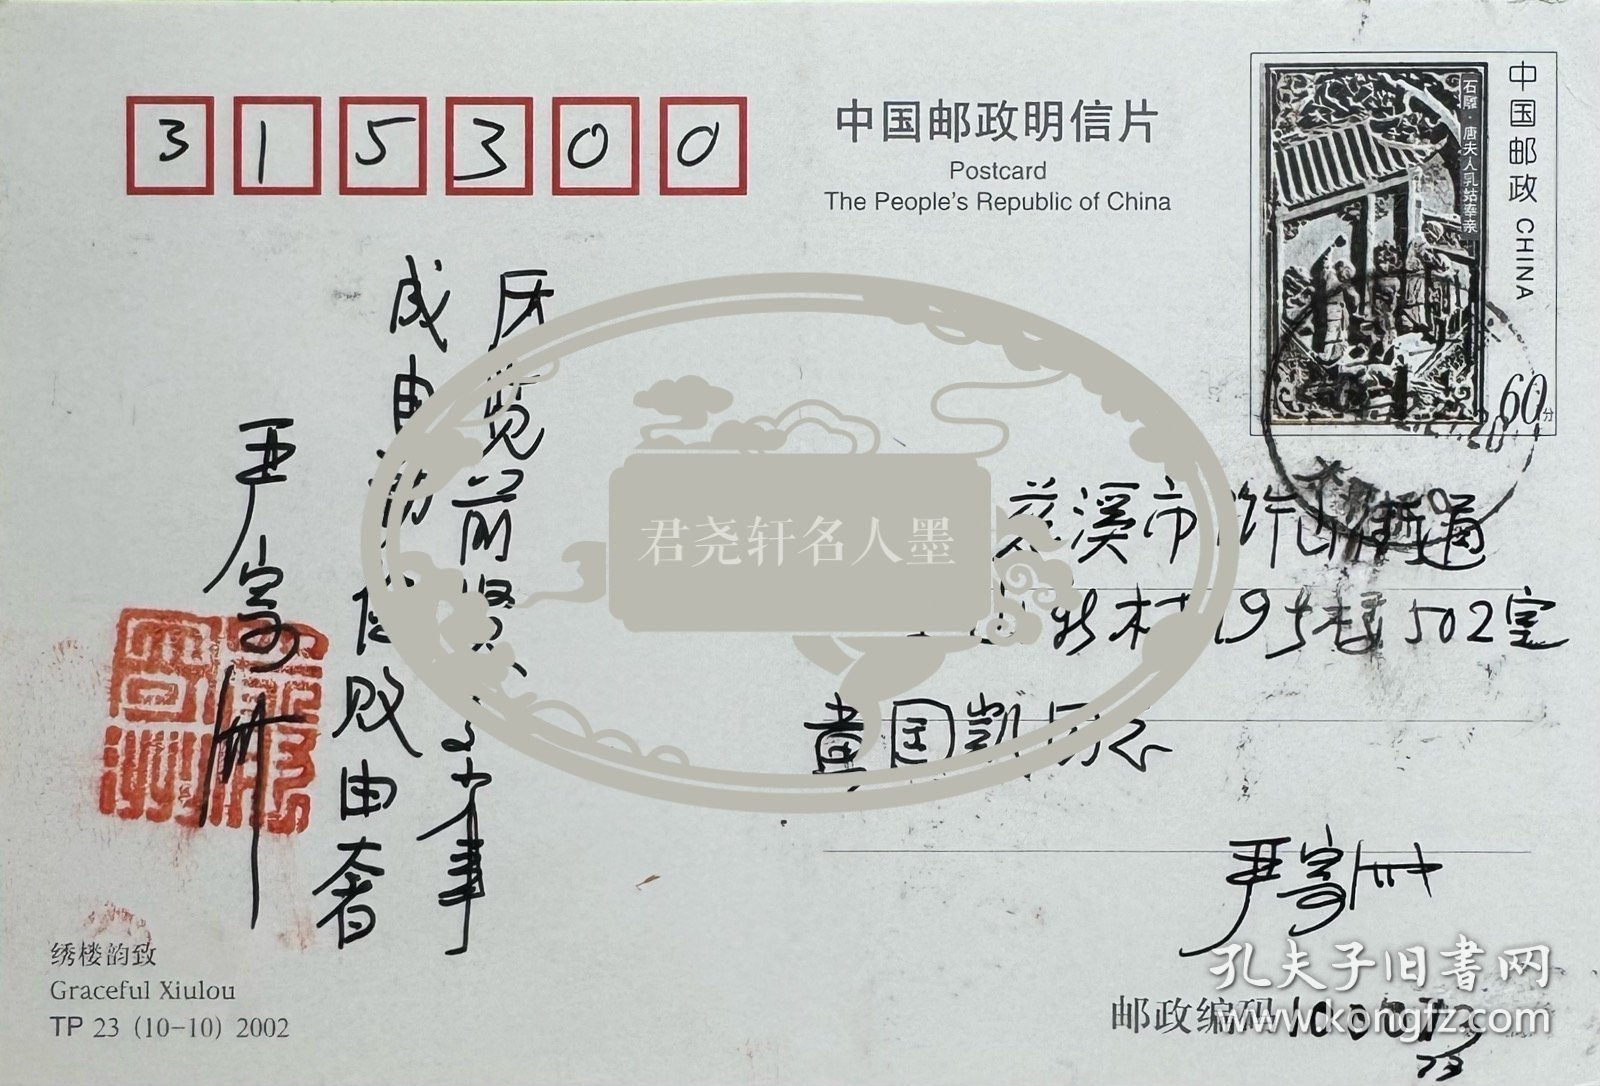 315300
中国邮政明信片
Postcard
The People's Republic of China
中国邮政 CHINA
石雕·唐夫人乳姑奉亲
60分
历览前贤
成由勤俭败由奢
严寄洲
君尧轩名人墨
慈溪市浒山街道
新村19号楼502室
黄国凯同志
严寄洲
绣楼韵致
Graceful Xiulou
TP 23 (10-10) 2002
孔夫子旧书网
www.kongfz.com
邮政编码